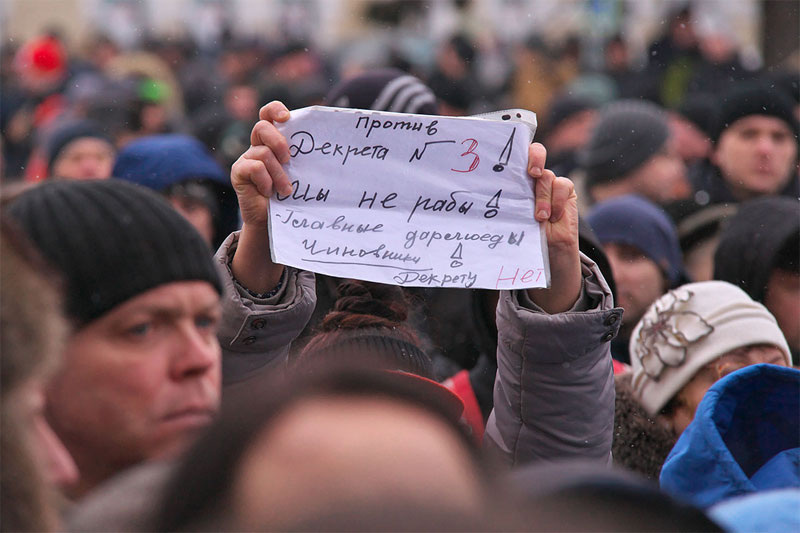 Против
Декрета № 3!
Мы не рабы!
- Главные дармоеды
Чиновники!
Декрету Нет